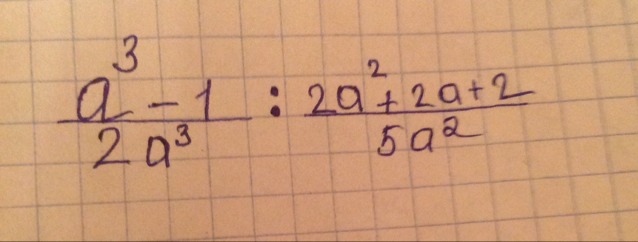 a³ - 1 : 2a² + 2a + 2
2a³ 5a²